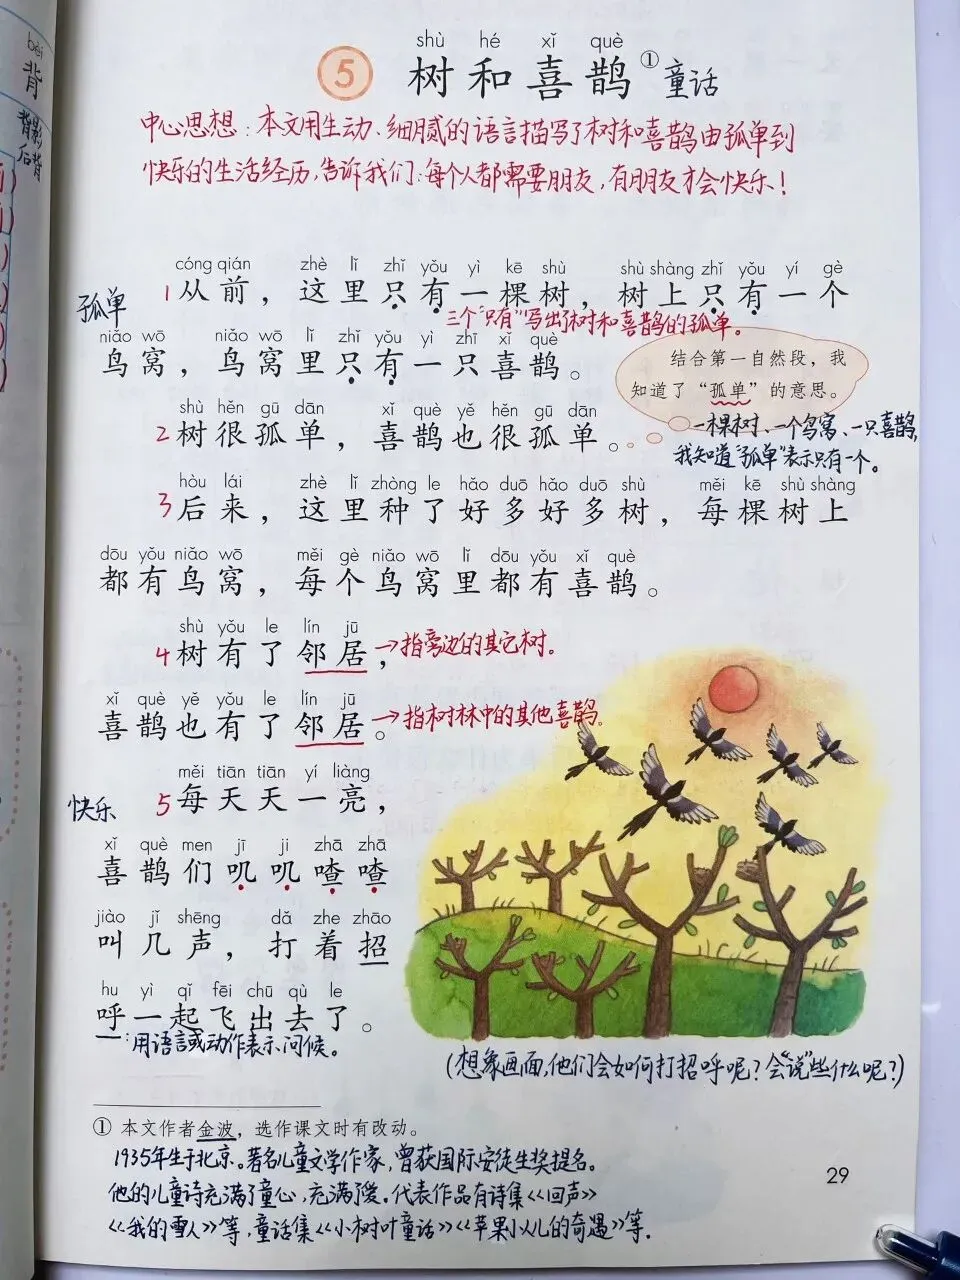 bèi
背
背影
后背
shù hé xǐ què
5 树和喜鹊① 童话
中心思想：本文用生动、细腻的语言描写了树和喜鹊由孤单到
快乐的生活经历，告诉我们：每个人都需要朋友，有朋友才会快乐！
cóng qián zhè lǐ zhǐ yǒu yì kē shù shù shàng zhǐ yǒu yí gè
孤单 1 从前，这里只有一棵树，树上只有一个
三个“只有”写出了树和喜鹊的孤单。
niǎo wō niǎo wō lǐ zhǐ yǒu yì zhī xǐ què
鸟窝，鸟窝里只有一只喜鹊。
结合第一自然段，我
知道了“孤单”的意思。
shù hěn gū dān xǐ què yě hěn gū dān
2 树很孤单，喜鹊也很孤单。
一棵树、一个鸟窝、一只喜鹊，
我知道“孤单”表示只有一个。
hòu lái zhè lǐ zhòng le hǎo duō hǎo duō shù měi kē shù shàng
3 后来，这里种了好多好多树，每棵树上
dōu yǒu niǎo wō měi gè niǎo wō lǐ dōu yǒu xǐ què
都有鸟窝，每个鸟窝里都有喜鹊。
shù yǒu le lín jū
4 树有了邻居，→指旁边的其它树。
xǐ què yě yǒu le lín jū
喜鹊也有了邻居。→指树林中的其他喜鹊。
měi tiān tiān yí liàng
快乐 5 每天天一亮，
xǐ què men jī ji zhā zhā
喜鹊们叽叽喳喳
jiào jǐ shēng dǎ zhe zhāo
叫几声，打着招
hu yì qǐ fēi chū qù le
呼一起飞出去了。
：用语言或动作表示问候。
(想象画面，他们会如何打招呼呢？会“说”些什么呢？)
① 本文作者金波，选作课文时有改动。
1935年生于北京。著名儿童文学作家，曾获国际安徒生奖提名。
他的儿童诗充满了童心，充满了爱。代表作品有诗集《回声》
《我的雪人》等，童话集《小树叶童话》《苹果小人儿的奇遇》等.
29